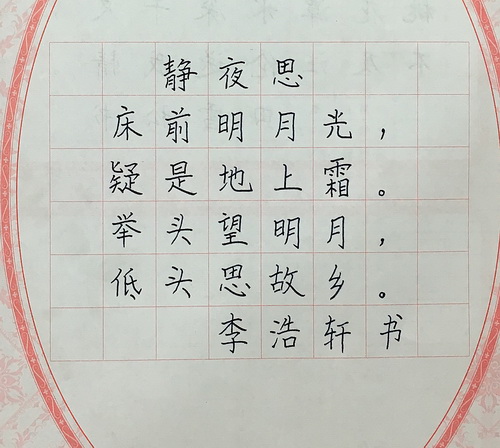 静夜思
床前明月光，
疑是地上霜。
举头望明月，
低头思故乡。
李浩轩书